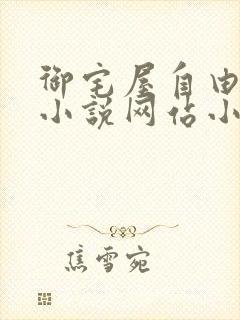 御宅屋自由
小说网佔小
焦雪宛